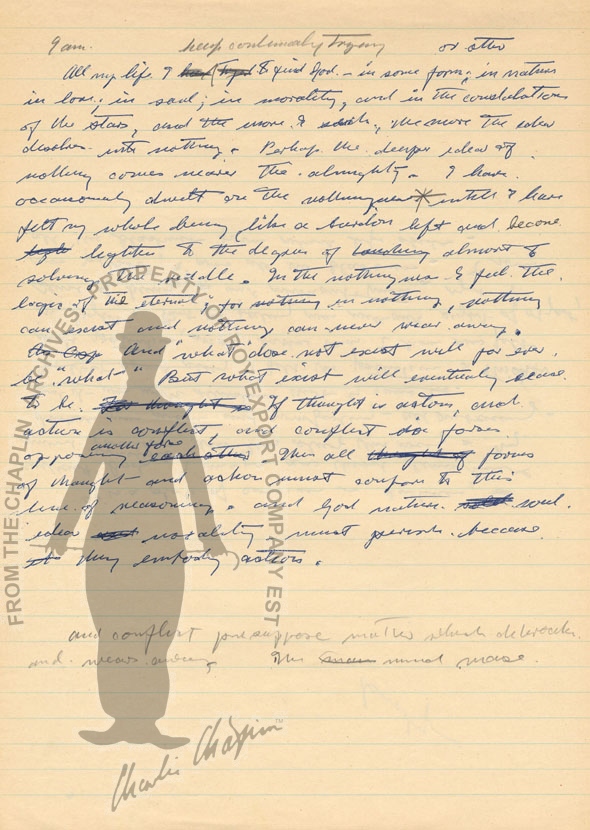 9 am. keep continually trying or other
All my life I have tryed to find God. - in some form; in nature
in love; in soul; in morality, and in the constelations
of the stars, and the more I seach, the more the idea
disolves into nothing. Perhaps the deeper idea of
nothing comes nearer the almighty. I have
occasionaly dwelt on the nothingness untill I have
felt my whole being like a burdon left and become
lighter to the degree of almost to
solving the riddle. In the nothingness I feel the
logic of the "eternal", for nothing in nothing, nothing
can exist and nothing can never wear away.
And "what" dose not exist will for ever
be "what" But what exist will eventually cease
to be. If thought is action, and
action is conflict and conflict is forces
opposing another force, then all forms
of thought and action must conform to this
line of reasoning, and God nature soul
idea morality must perish because
they embody action.
and conflict presuppose matter which
and wears away, the must
FROM THE CHAPLIN ARCHIVES. PROPERTY OF ROY EXPORT COMPANY EST
Charlie Chaplin™